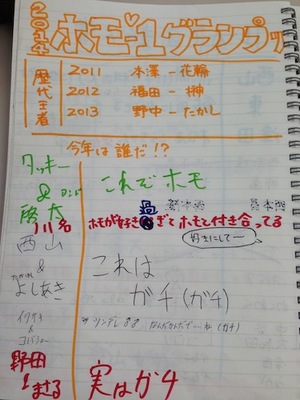 2014
ホモ-1グランプリ
歴代王者
2011 本澤-花輪
2012 福田-榊
2013 野中-たかし
今年は誰だ!?
タッキー
&
これでホモ
川名
ホモが好き過ぎてホモと付き合ってる
好きにして―
西山
&
よしあき
これは
ガチ(ガチ)
イクサキ
&
※ツンデレ
なんだかんだで
(ガチ)
野田
まさる
実はガチ